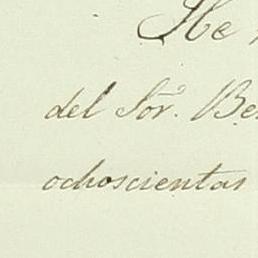 He
del Sor. Be
ochoscientas